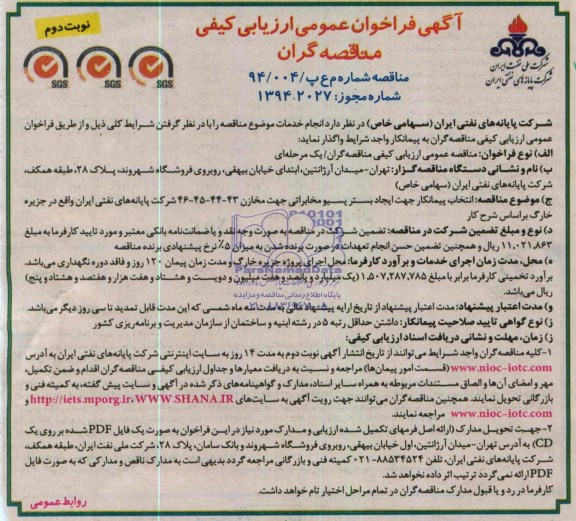 آگهی فراخوان عمومی ارزیابی کیفی
مناقصه گران
نوبت دوم
SGS
SGS
SGS
شرکت ملی نفت ایران
شرکت پایانه های نفتی ایران
مناقصه شماره م ع پ/۹۴/۰۰۴
شماره مجوز: ۱۳۹۴.۲۰۲۷
شرکت پایانه های نفتی ایران (سهامی خاص) در نظر دارد انجام خدمات موضوع مناقصه را با در نظر گرفتن شرایط کلی ذیل و از طریق فراخوان
عمومی ارزیابی کیفی مناقصه گران به پیمانکار واجد شرایط واگذار نماید:
الف) نوع فراخوان: مناقصه عمومی ارزیابی کیفی مناقصه گران/ یک مرحله ای
ب) نام و نشانی دستگاه مناقصه گزار: تهران-میدان آرژانتین، ابتدای خیابان بیهقی، روبروی فروشگاه شهروند، پلاک ۲۸، طبقه همکف،
شرکت پایانه های نفتی ایران (سهامی خاص)
ج) موضوع مناقصه: انتخاب پیمانکار جهت ایجاد بستر پسیو مخابراتی جهت مخازن ۴۳-۴۴-۴۵-۴۶ شرکت پایانه های نفتی ایران واقع در جزیره
خارگ براساس شرح کار
د) نوع و مبلغ تضمین شرکت در مناقصه: تضمین شرکت در مناقصه به صورت وجه نقد و یا ضمانت نامه بانکی معتبر و مورد تایید کارفرما به مبلغ
۱۱,۰۲۱,۸۶۳ ریال و همچنین تضمین حسن انجام تعهدات در صورت برنده شدن به میزان ۵٪ نرخ پیشنهادی برنده مناقصه
ه) محل، مدت زمان اجرای خدمات و برآورد کارفرما: محل اجرای پروژه جزیره خارگ و مدت زمان پیمان ۱۲۰ روز و فاقد دوره نگهداری می باشد.
برآورد تخمینی کارفرما برابر با مبلغ ۱,۵۰۷,۲۸۷,۷۸۵ (یک میلیارد و پانصد و هفت میلیون و دویست و هشتاد و هفت هزار و هفتصد و هشتاد و پنج)
ریال می باشد.
و) مدت اعتبار پیشنهاد: مدت اعتبار پیشنهاد از تاریخ ارایه پیشنهاد مالی به مدت ماه شمسی که این مدت قابل تمدید تا سی روز دیگر می باشد.
ز) نوع گواهی تایید صلاحیت پیمانکار: داشتن حداقل رتبه ۵ در رشته ابنیه و ساختمان از سازمان مدیریت و برنامه ریزی کشور
ز) زمان، مهلت و نشانی دریافت اسناد ارزیابی کیفی:
۱-کلیه مناقصه گران واجد شرایط می توانند از تاریخ انتشار آگهی نوبت دوم به مدت ۱۴ روز به سایت اینترنتی شرکت پایانه های نفتی ایران به آدرس
www.nioc-iotc.com (قسمت امور پیمان ها) مراجعه و نسبت به دریافت معیارها و جداول ارزیابی کیفی مناقصه گران اقدام و ضمن تکمیل،
مهر و امضای آن ها و الصاق مستندات مربوطه به همراه سایر اسناد، مدارک و گواهینامه های ذکر شده در آگهی و سایت پیش گفته، به کمیته فنی و
بازرگانی تحویل نمایند. همچنین مناقصه گران می توانند جهت رویت آگهی به سایت های http://iets.mporg.ir، WWW.SHANA.IR و
www.nioc-iotc.com مراجعه نمایند.
۲-جهت تحویل مدارک (ارائه اصل فرمهای تکمیل شده ارزیابی و مدارک مورد نیاز در این فراخوان به صورت یک فایل PDF شده بر روی یک
CD) به آدرس تهران-میدان آرژانتین، اول خیابان بیهقی، روبروی فروشگاه شهروند و بانک سامان، پلاک ۲۸، شرکت ملی نفت ایران، طبقه همکف،
شرکت پایانه های نفتی ایران، تلفن ۸۸۵۳۴۵۲۴-۰۲۱ کمیته فنی و بازرگانی مراجعه گردد بدیهی است به مدارک ناقص و مدارکی که به صورت فایل
PDF ارائه نمی گردد ترتیب اثر داده نخواهد شد.
کارفرما در رد و یا قبول مدارک مناقصه گران در تمام مراحل اختیار تام خواهد داشت.
روابط عمومی